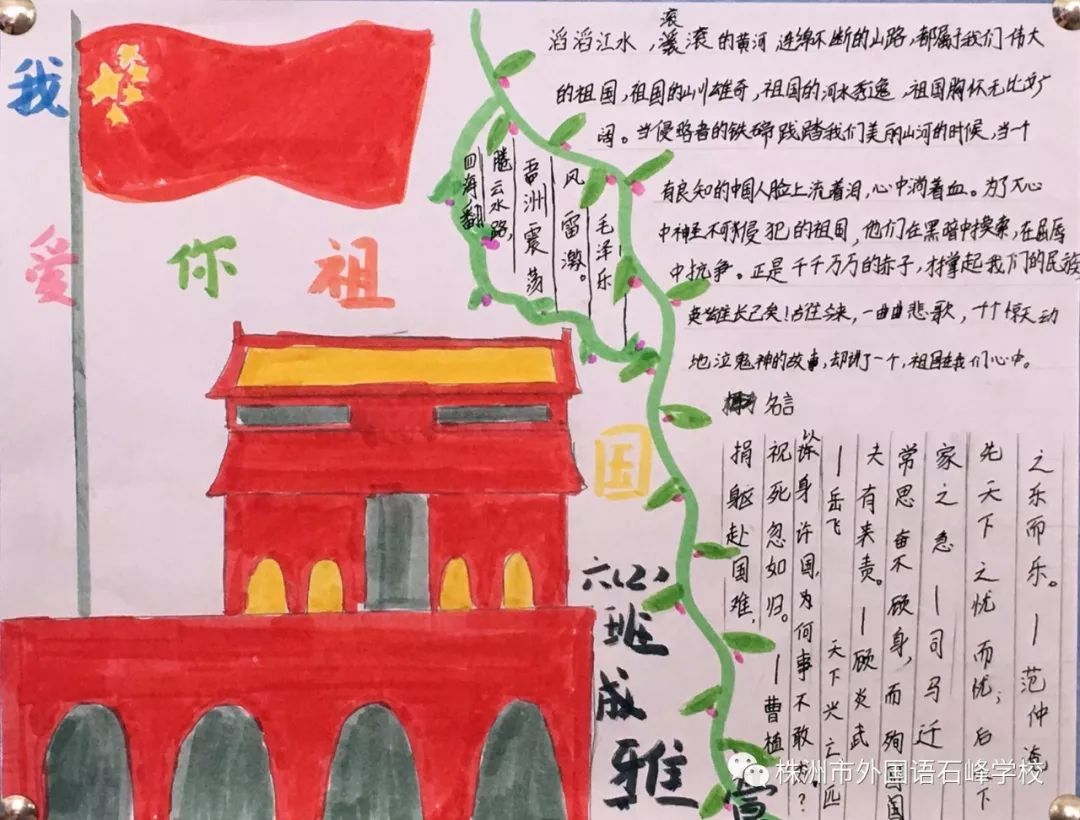 我
爱 你 祖
国
滔滔江水，滚滚的黄河 连绵不断的山路，都属于我们伟大
的祖国，祖国的山川雄奇，祖国的河水秀逸，祖国胸怀无比宽广
阔。当侵略者的铁蹄践踏我们美丽山河的时候，当一个
有良知的中国人脸上流着泪，心中淌着血。为了
中神圣不可侵犯的祖国，他们在黑暗中摸索，在屈辱
中抗争。正是千千万万的赤子，才撑起我们的民族
英雄长已矣！古往今来，一曲曲悲歌，一个个惊天动
地泣鬼神的故事，却说了一个，祖国在我们心中。
四海翻
腾云水路，
五洲震荡
风雷激。
毛泽东
名言
捐躯赴国难，
祝死忽如归。—曹植
以身许国，为何事不敢为？
—岳飞 天下兴亡匹
夫有来责。—顾炎武
常思奋不顾身，而殉国国
家之急—司马迁
先天下之忧而忧；后天下
之乐而乐。—范仲淹
六(2)
班
成
雅
株洲市外国语石峰学校